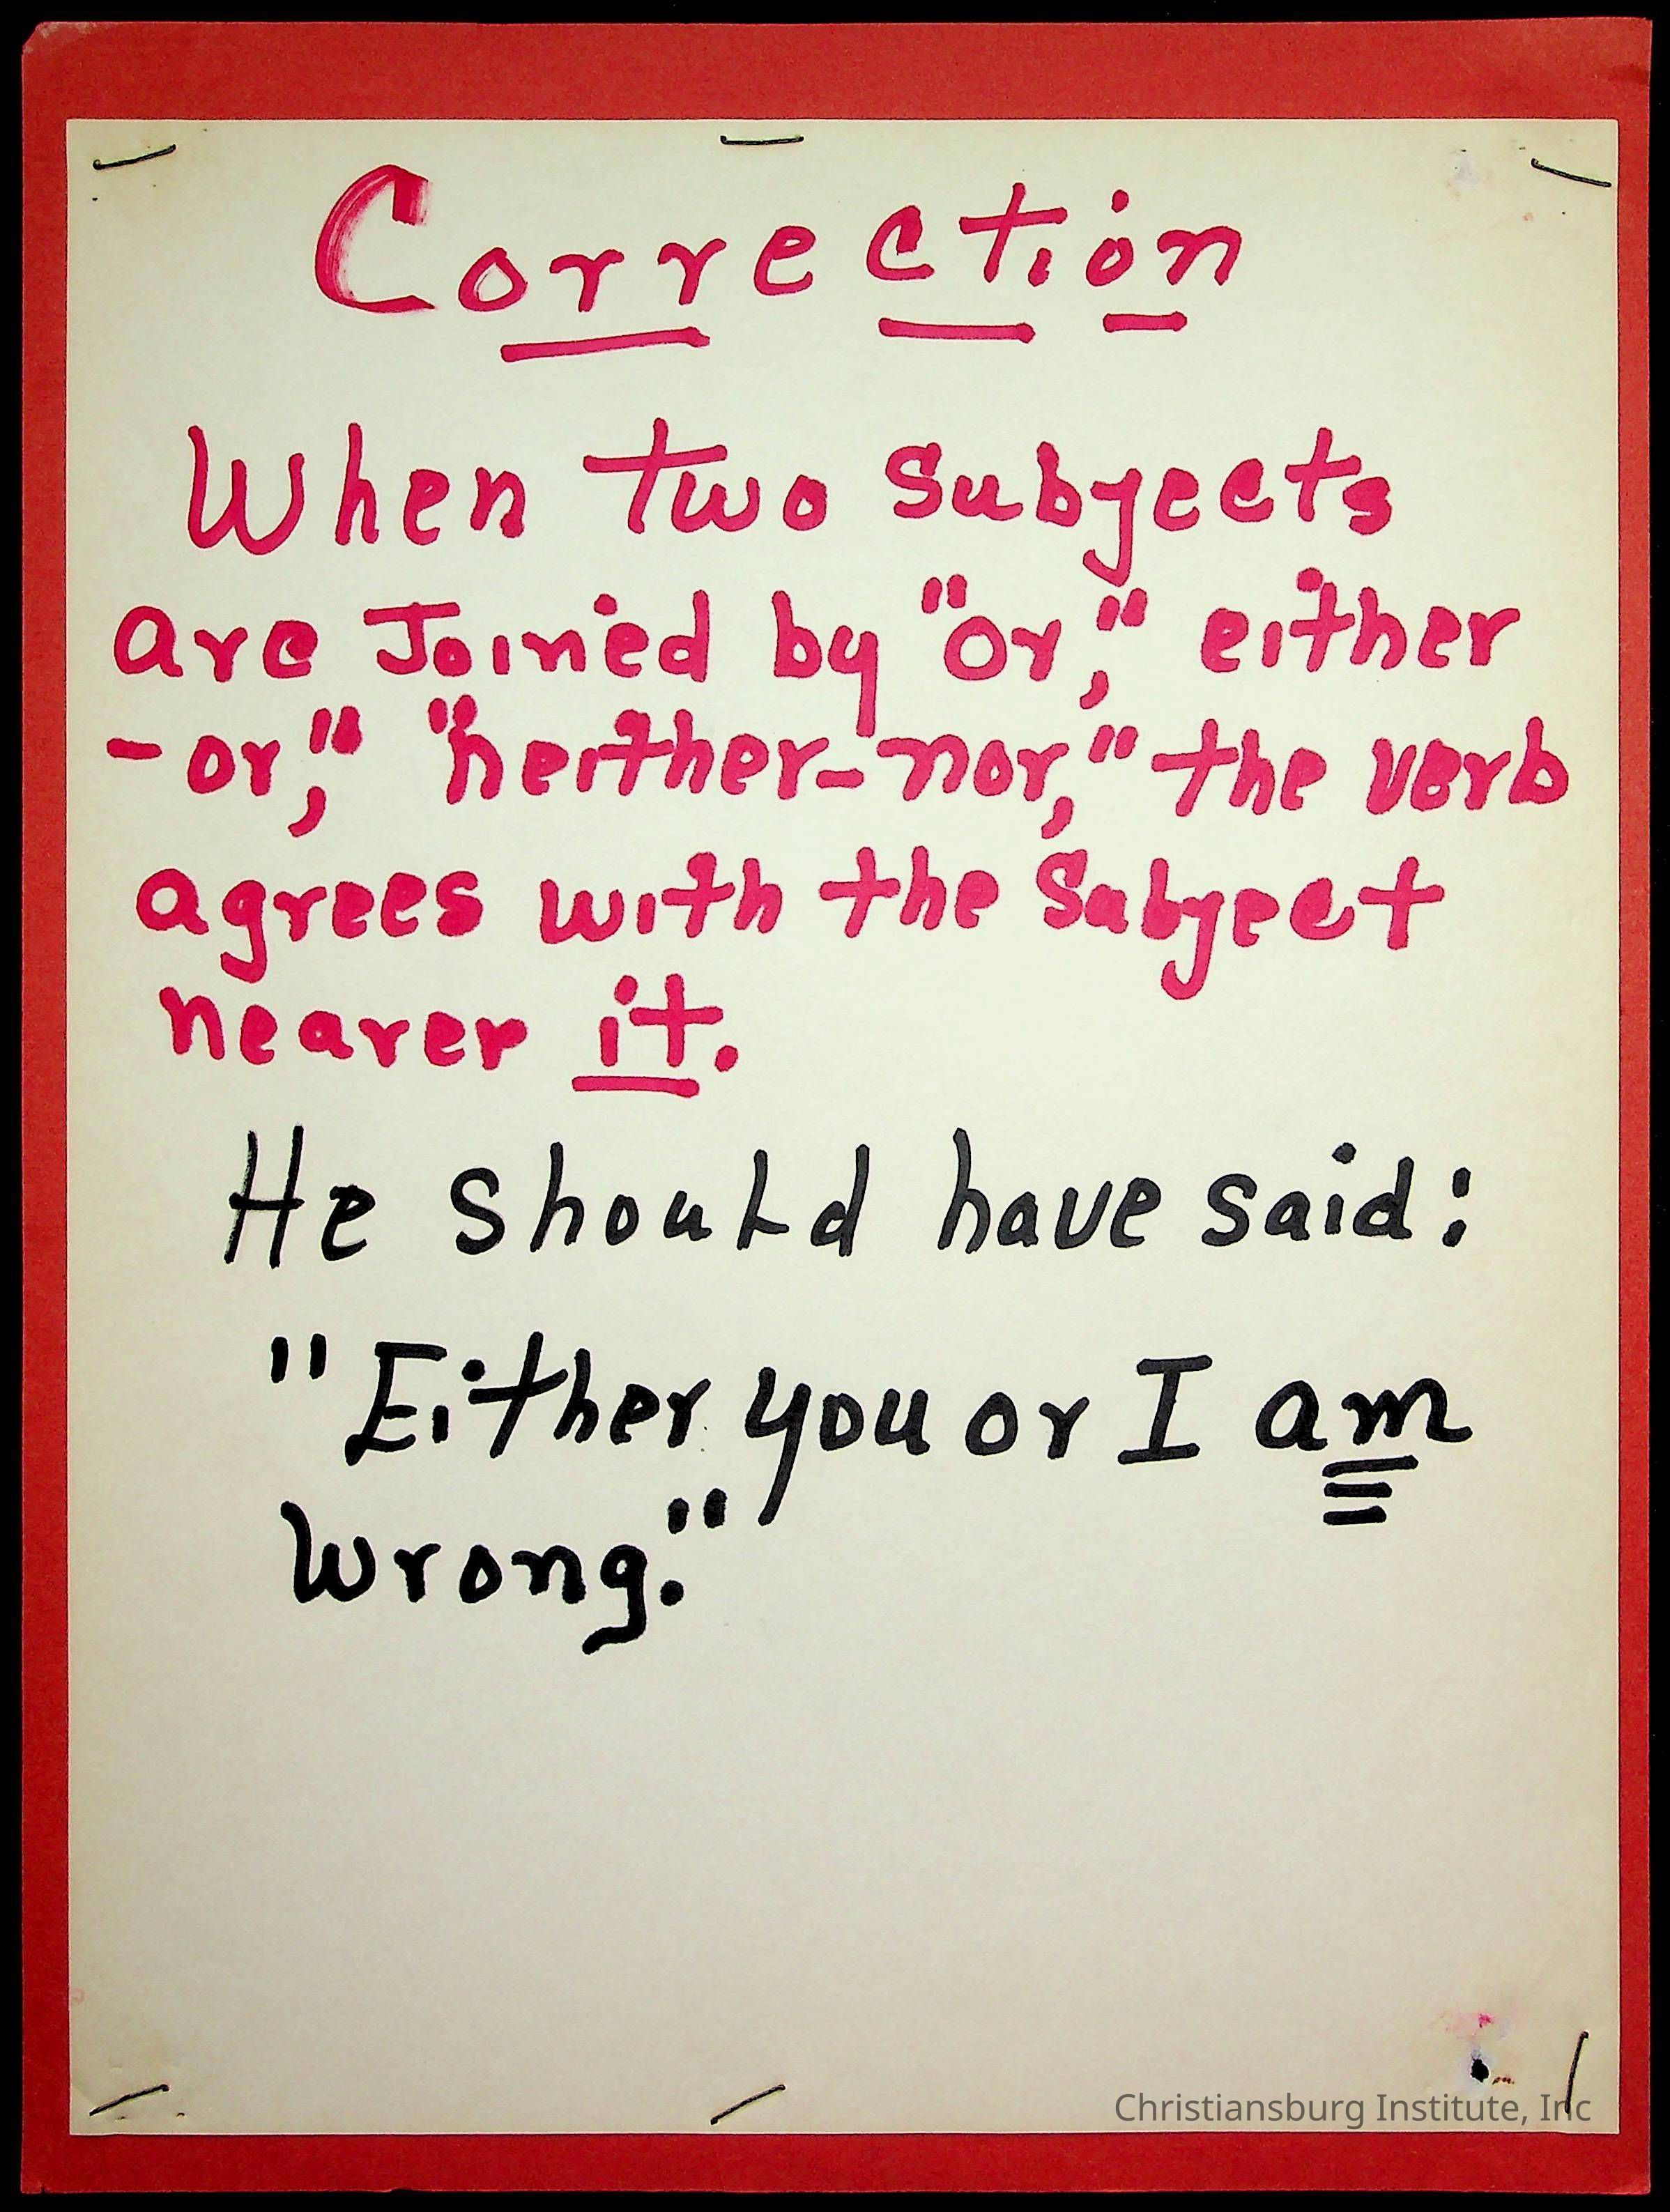 Correction
When two subjects
are Joined by "or," either
-or," "neither-nor," the verb
agrees with the subject
nearer it.
He should have said:
"Either you or I am
wrong."
Christiansburg Institute, Inc